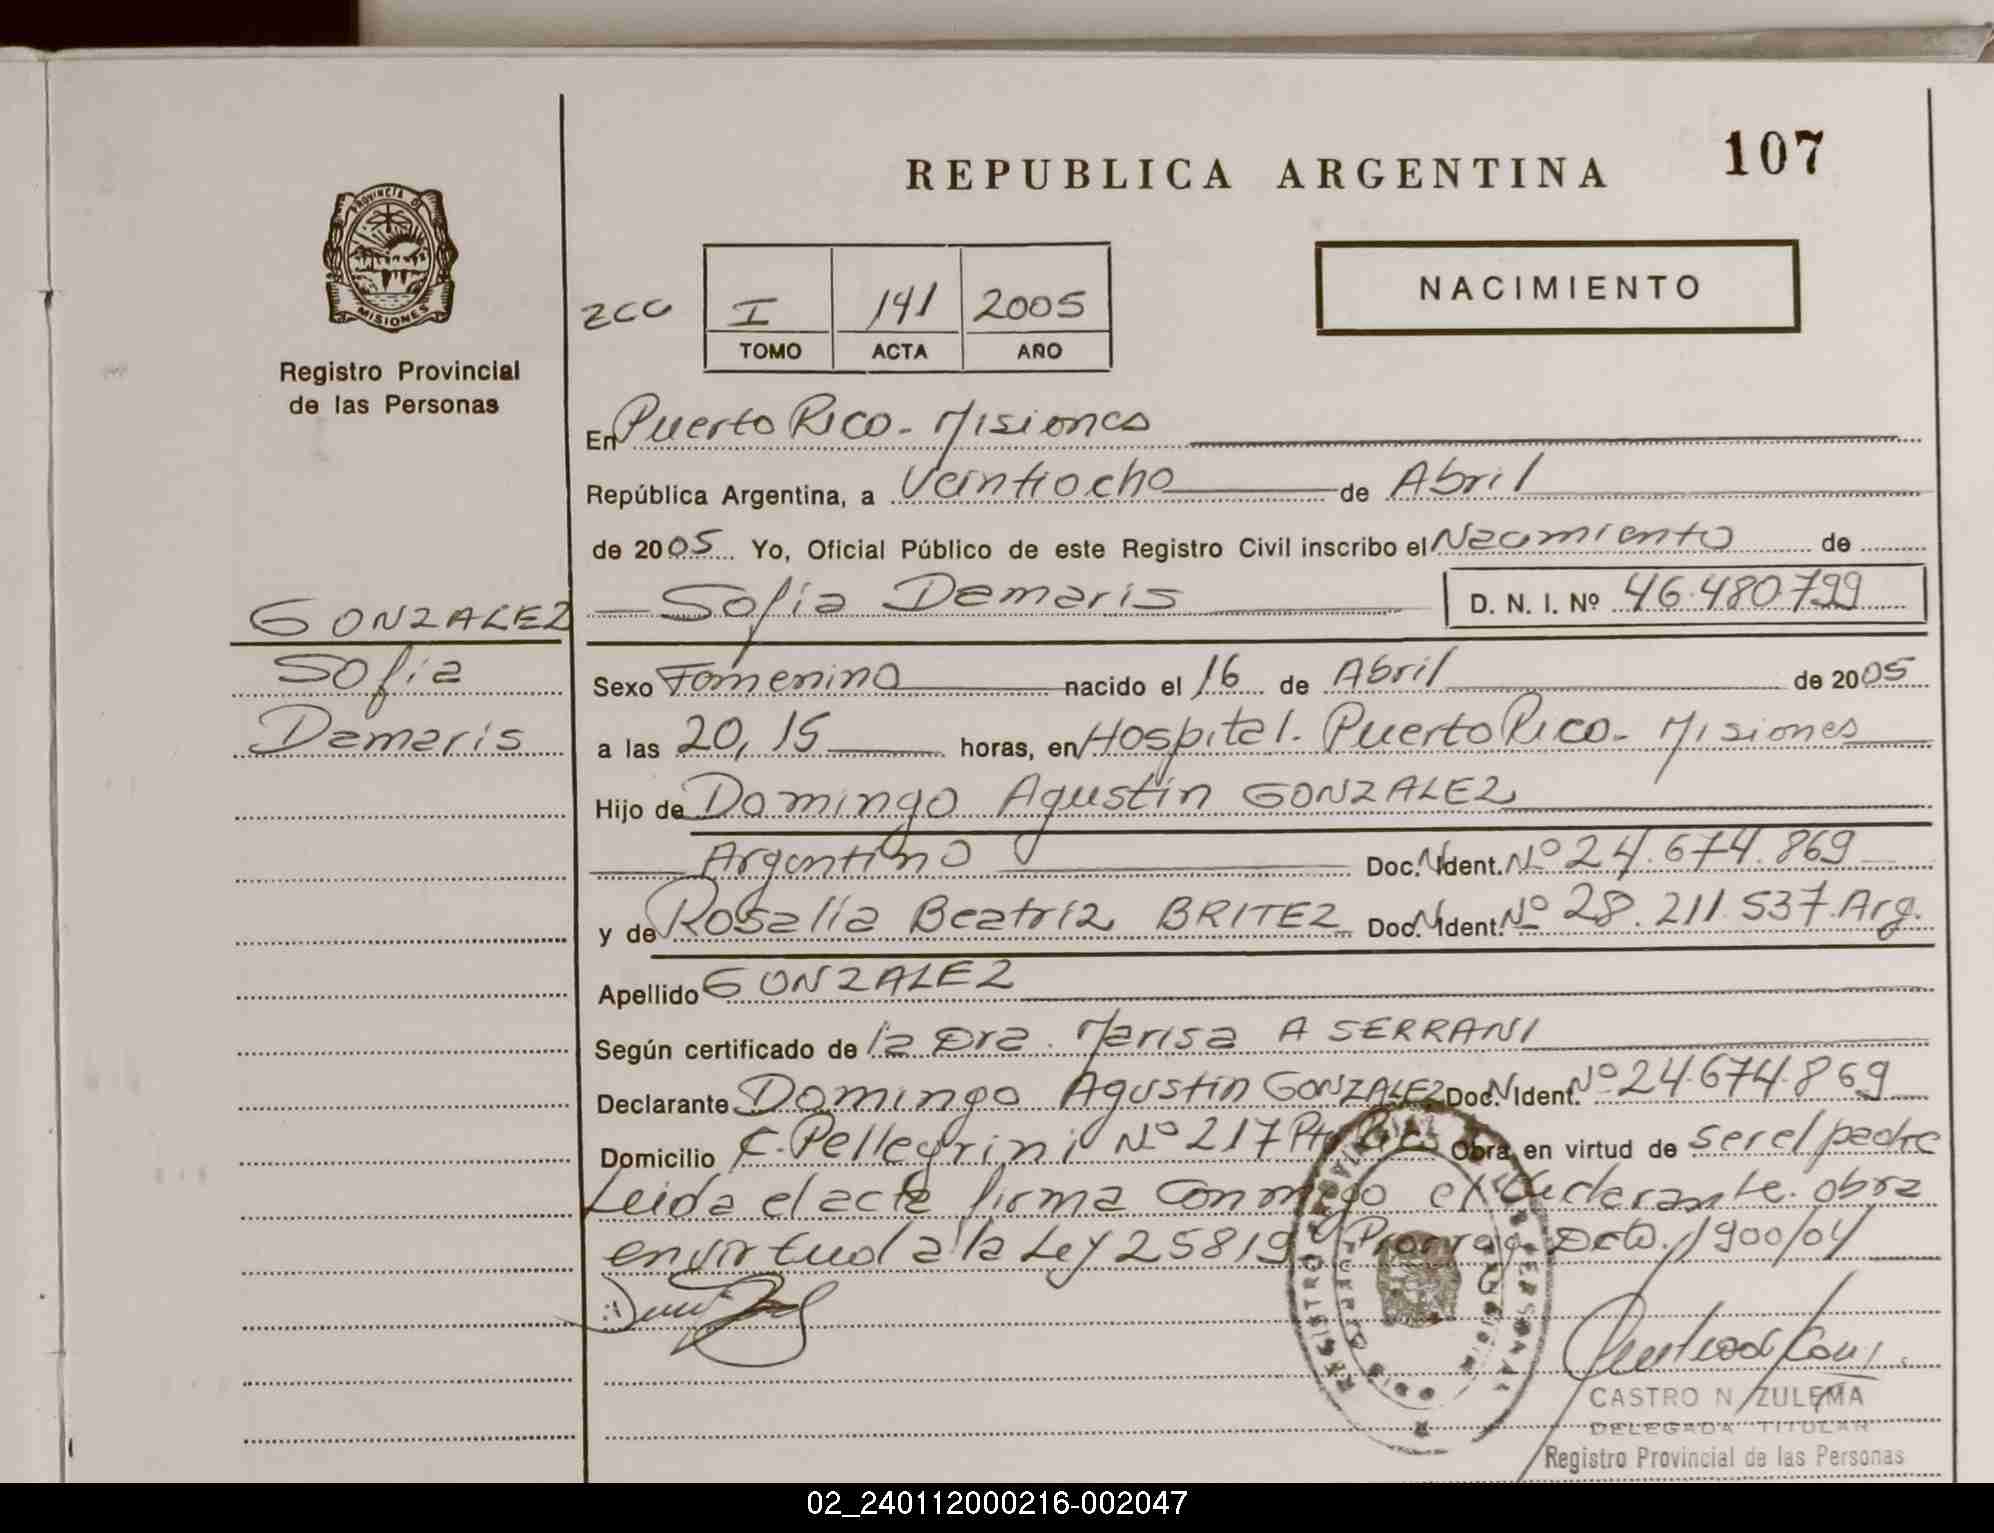 REPUBLICA ARGENTINA
107
PROVINCIA DE
MISIONES
Registro Provincial
de las Personas
NACIMIENTO
I 141 2005
TOMO ACTA AÑO
En Puerto Rico - Misiones
República Argentina, a Veintiocho de Abril
de 2005 Yo, Oficial Público de este Registro Civil inscribo el Nacimiento de
GONZALEZ
Sofia Damaris D. N. I. Nº 46.480.799
Sofia
Sexo Femenino nacido el 16 de Abril de 2005
Damaris
a las 20,15 horas, en Hospital. Puerto Rico - Misiones
Hijo de Domingo Agustin GONZALEZ
Argentino Doc. Ident. Nº 24.674.869
y de Rosalia Beatriz BRITEZ Doc. N Ident. Nº 28.211.537 Arg.
Apellido GONZALEZ
Según certificado de la Dra. Marisa A SERRANI
Declarante Domingo Agustin GONZALEZ Doc. N Ident. Nº 24.674.869
Domicilio C. Pellegrini Nº 217 Pto Rico Obra en virtud de ser el padre
Leida el acta firma conmigo el declarante. obra
en virtud a la Ley 25819 y Prorrog Dcto. 1900/04
CASTRO N ZULEMA
DELEGADA TITULAR
Registro Provincial de las Personas
02_240112000216-002047